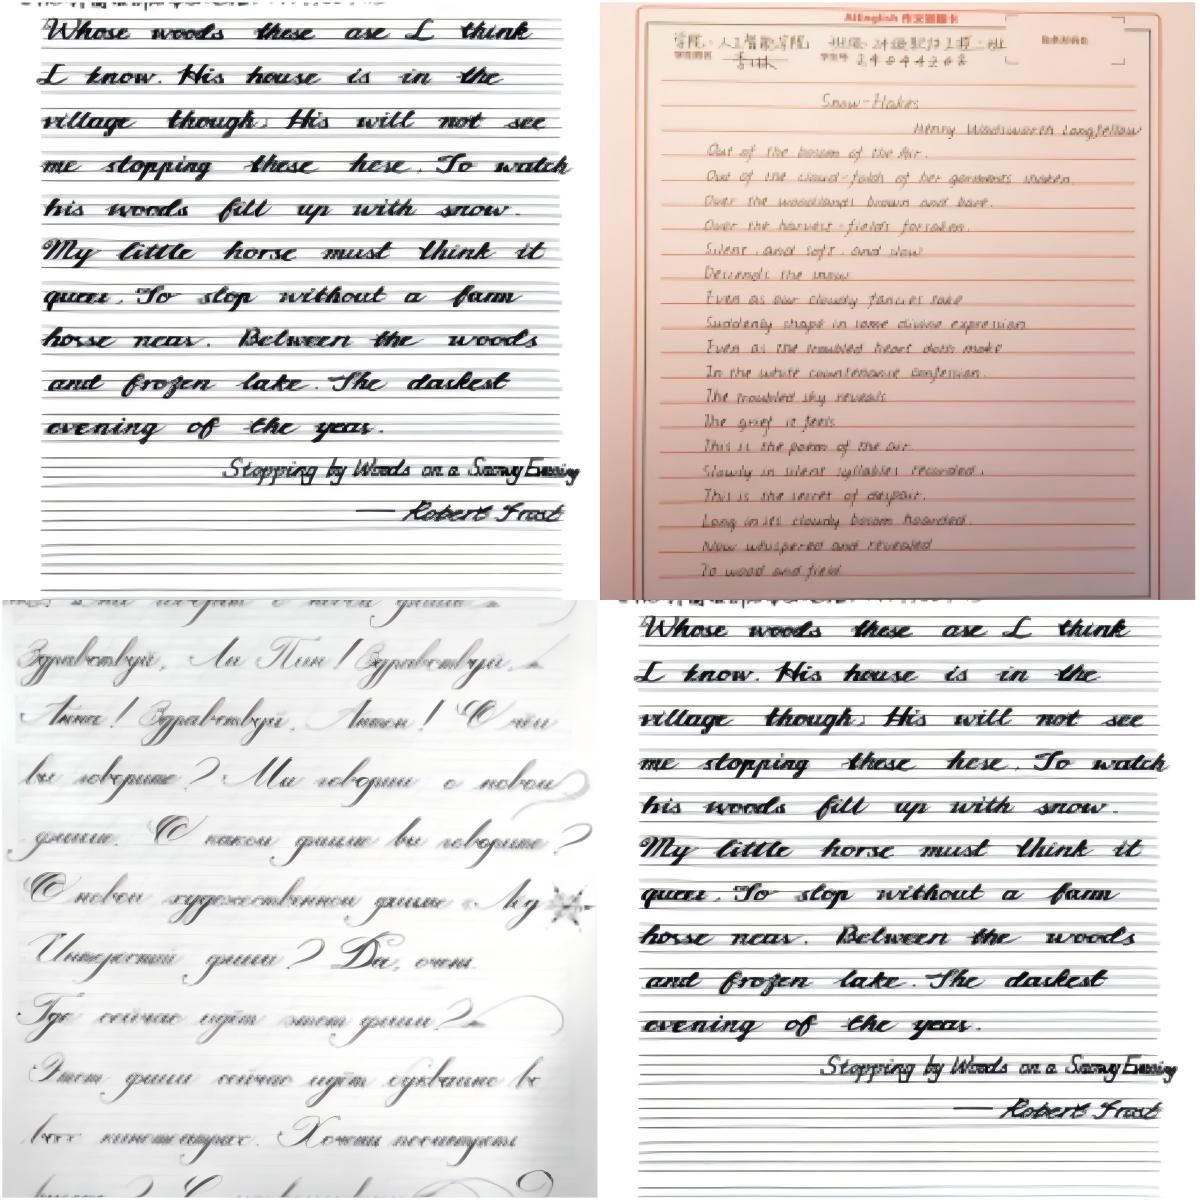 Whose woods these are I think
I know. His house is in the
village though; His will not see
me stopping these here. To watch
his woods fill up with snow.
My little horse must think it
queer. To stop without a farm
horse near. Between the woods
and frozen lake. The darkest
evening of the year.
Stopping by Woods on a Snowy Evening
— Robert Frost
AIEnglish 作文答题卡
学院：人工智能学院
Snow-flakes
Henry Wadsworth Longfellow
Out of the bosom of the Air.
Out of the cloud-folds of her garments shaken.
Over the woodlands brown and bare.
Over the harvest-fields forsaken.
Silent, and soft, and slow
Descends the snow
Even as our cloudy fancies take
Suddenly shape in some divine expression
Even as the troubled heart doth make
In the white countenance confession.
The troubled sky reveals
The grief it feels
This is the poem of the air.
Slowly in silent syllables recorded.
This is the secret of despair.
Long in its cloudy bosom hoarded.
Now whispered and revealed
To wood and field.
Здравствуй, Ли Пин! Здравствуй,
Анна! Здравствуй, Антон! О чём
вы говорите? Мы говорим о новом
фильме. О каком фильме вы говорите?
О новом художественном фильме
Интересный фильм? Да, очень.
Где сейчас идёт этот фильм?
Этот фильм сейчас идёт буквально во
всех кинотеатрах. Хочешь посмотреть
Whose woods these are I think
I know. His house is in the
village though; His will not see
me stopping these here. To watch
his woods fill up with snow.
My little horse must think it
queer. To stop without a farm
horse near. Between the woods
and frozen lake. The darkest
evening of the year.
Stopping by Woods on a Snowy Evening
— Robert Frost